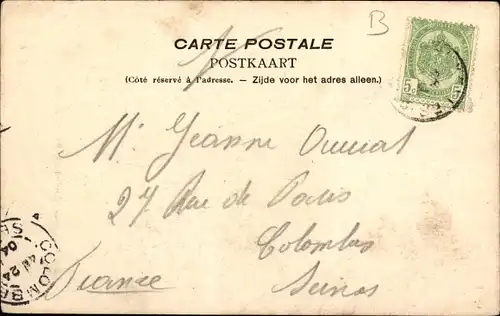 B
CARTE POSTALE
POSTKAART
(Côté réservé à l'adresse. — Zijde voor het adres alleen.)
5c 5c
Mr Jeanne
27 Rue de Paris
Colombes
Seine
France
COLOMB
24
04